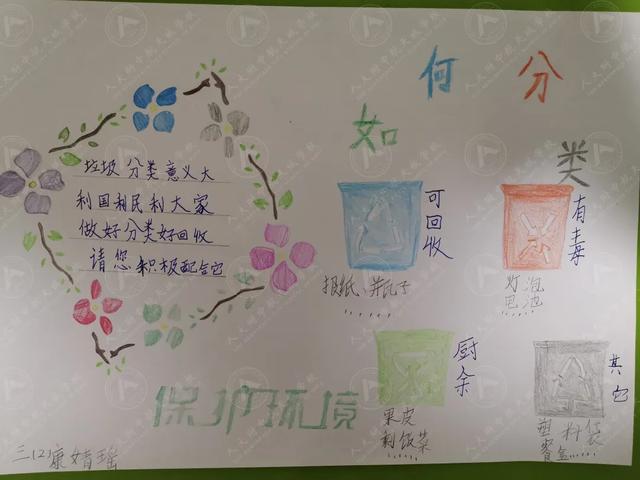 如何分类
垃圾分类意义大
利国利民利大家
做好分类好回收
请您积极配合它
可回收
报纸、并瓦子......
有毒
灯泡
电池......
厨余
果皮
剩饭菜......
其它
塑料袋
餐盒......
保护环境
三(2)康婧瑶